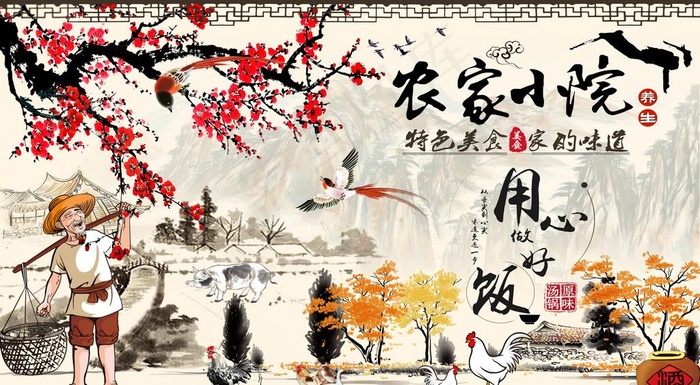 农家小院
养生
特色美食 美食 家的味道
用心
做好
饭
原味
汤锅
酒